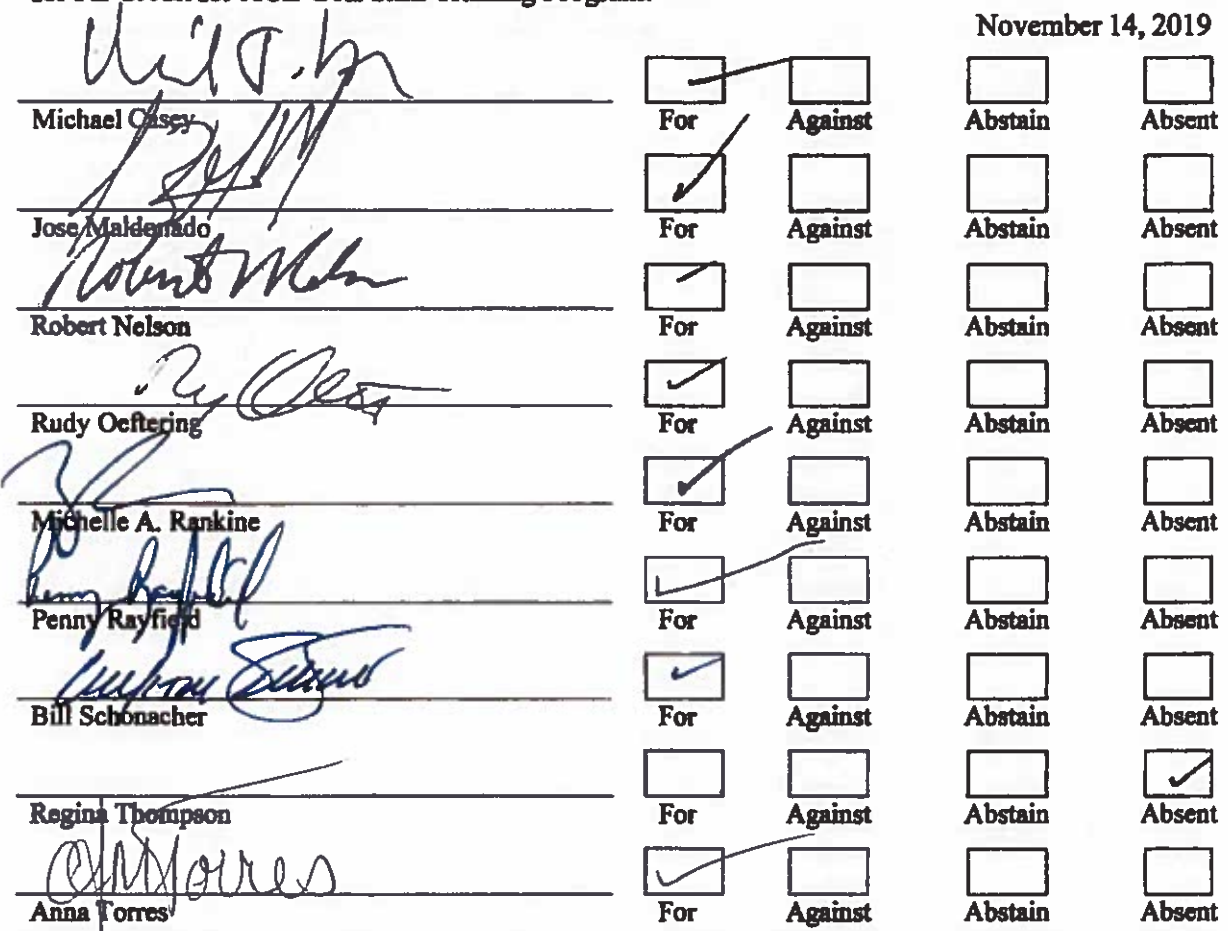 November 14, 2019
Michael Casey For Against Abstain Absent
Jose Maldonado For Against Abstain Absent
Robert Nelson
Robert Nelson For Against Abstain Absent
Rudy Oeftering For Against Abstain Absent
Michelle A. Rankine For Against Abstain Absent
Penny Rayfield
Penny Rayfield For Against Abstain Absent
Bill Schonacher For Against Abstain Absent
Regina Thompson For Against Abstain Absent
Torres
Anna Torres For Against Abstain Absent